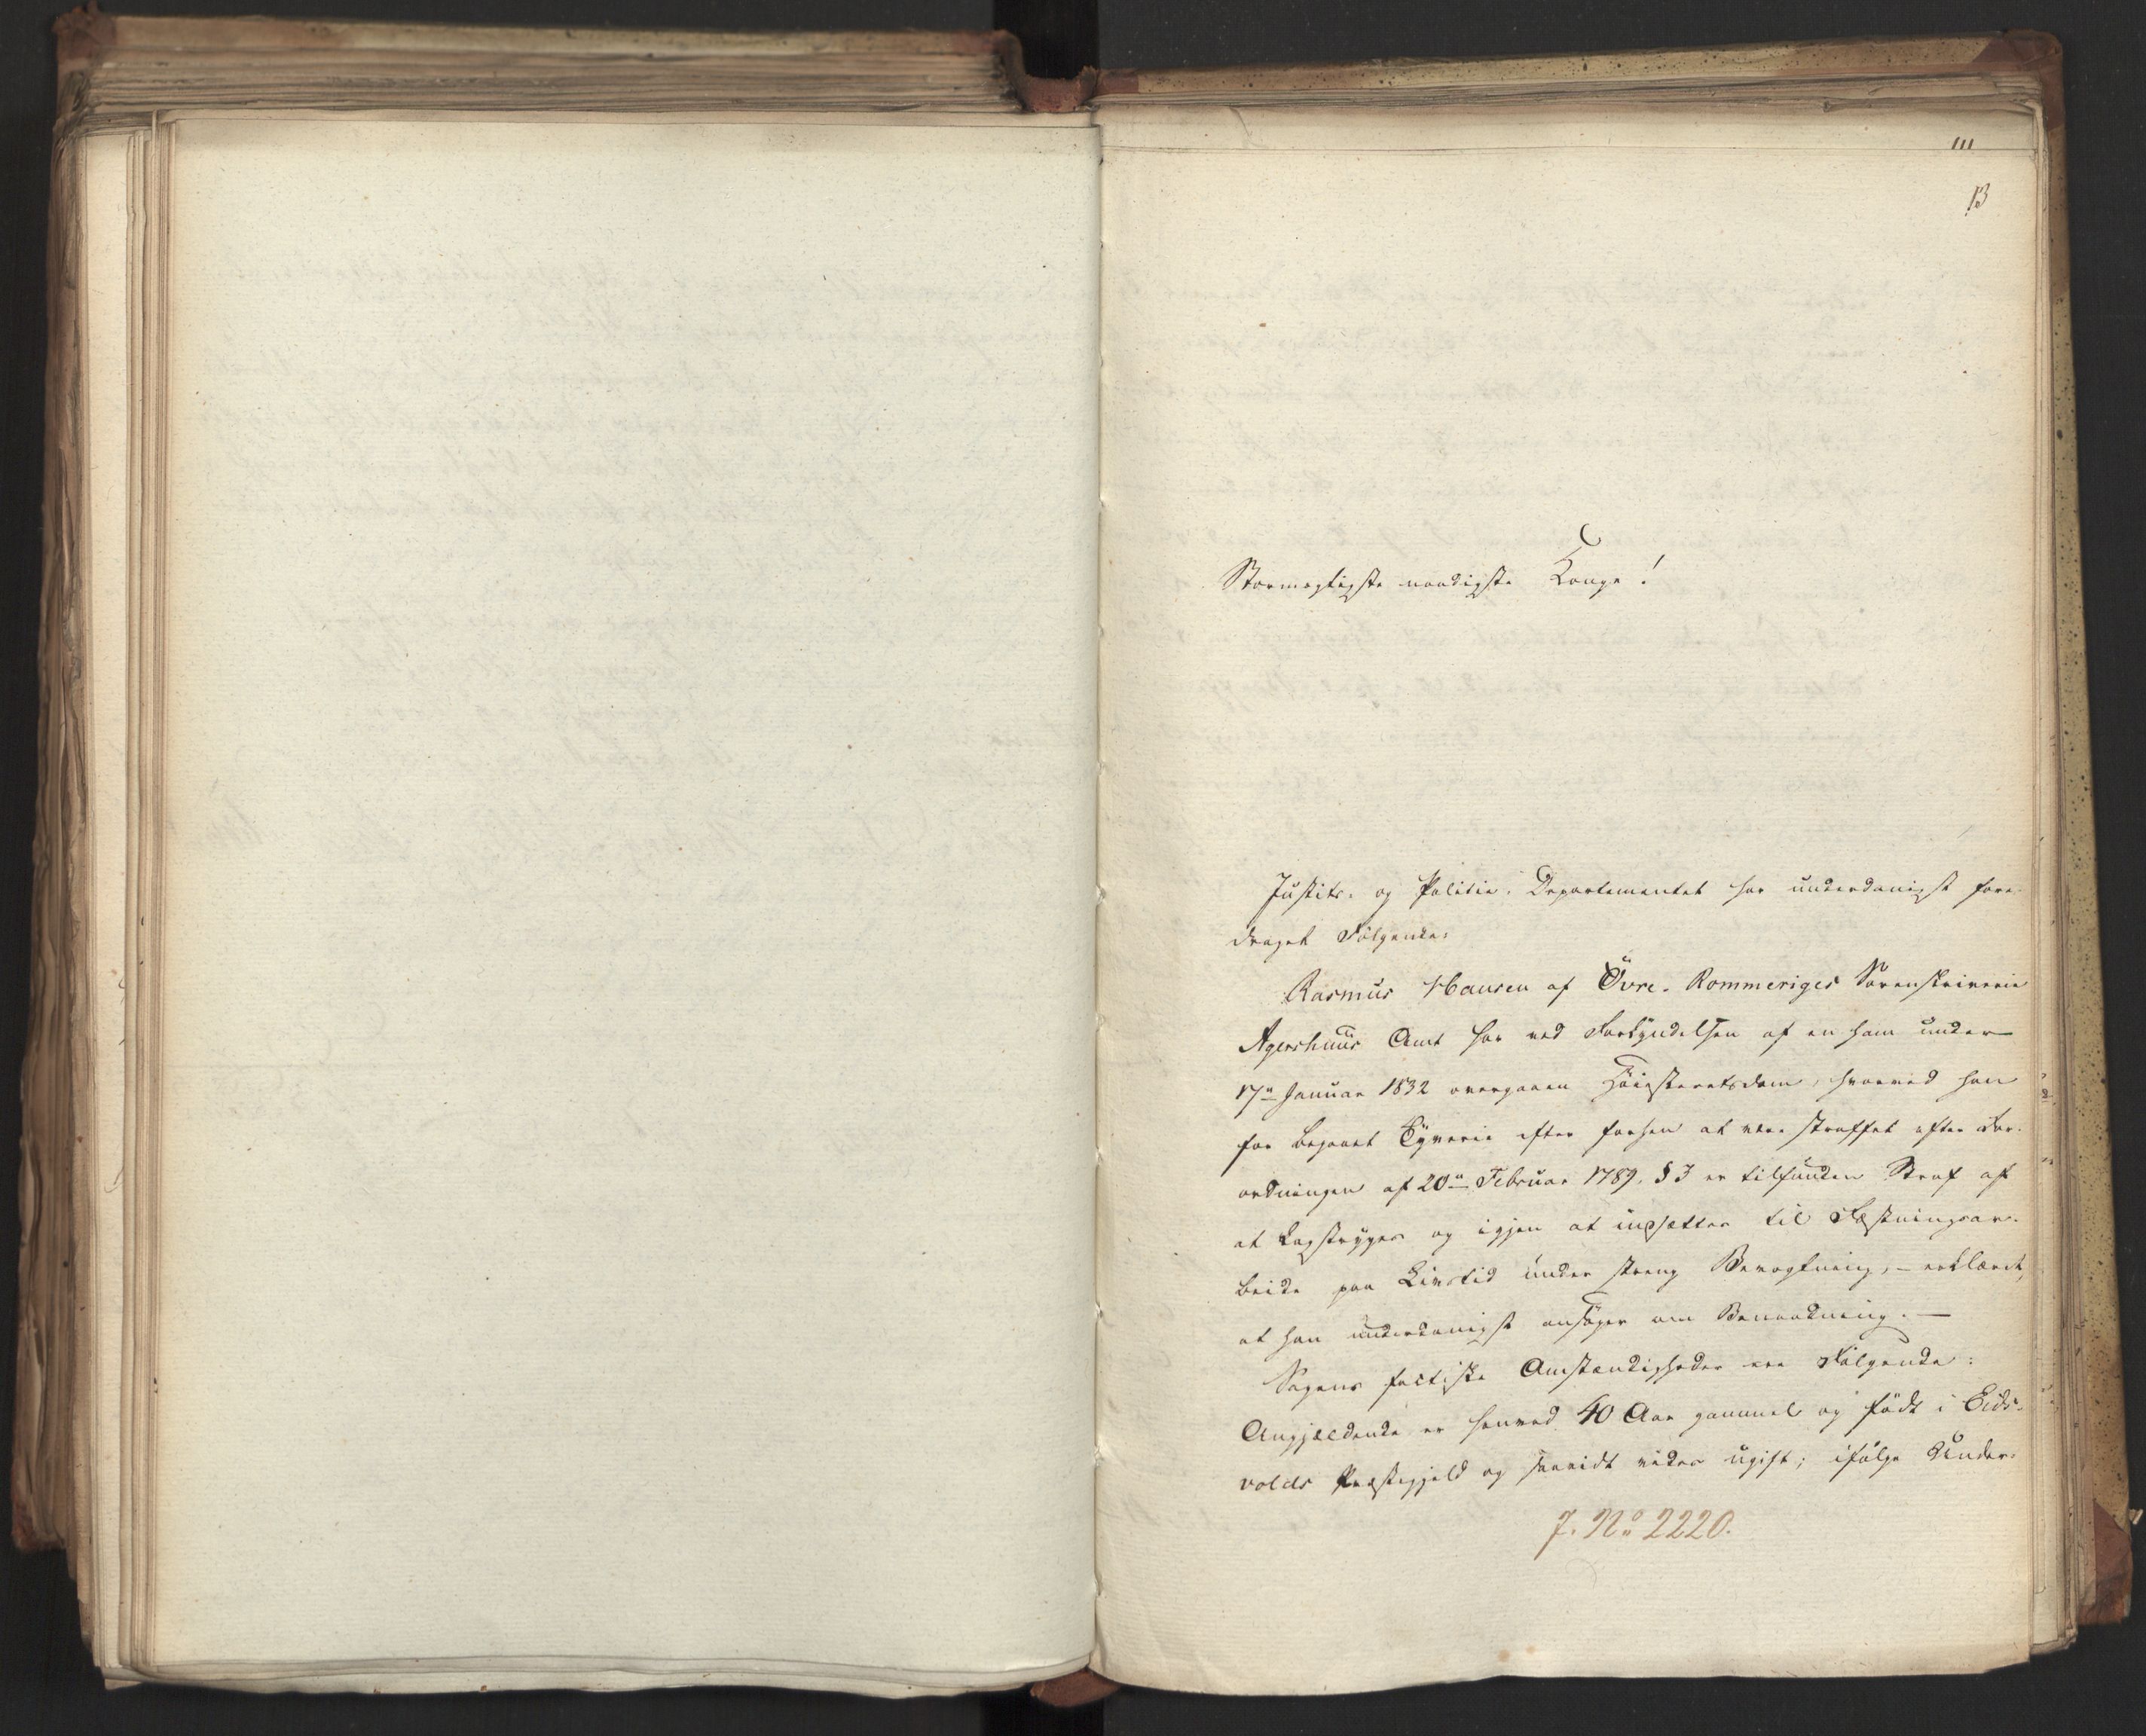 111
13
Stormægtigste naadigste Konge!
Justits- og Politie-Departementet har underdanigst fore-
draget Følgende:
Rasmus Hansen af Övre-Rommeriges Sorenskriverie
Agershuus Amt har ved Forkyndelsen af en ham under
17n Januar 1832 overgaaen Høiesteretsdom, hvorved han
for begaaet Tyverie efter forhen at være straffet efter For-
ordningen af 20n Februar 1789. § 3 er tilfunden Straf af
at kagstryges og igjen at indsættes til Fæstningsar-
beide paa Livstid under streng Bevogtning, – erklæret,
at han underdanigst ansøger om Benaadning. –
Sagens factiske Omstændigheder ere Følgende:
Angjældende er henved 40 Aar gammel og född i Eids-
volds Præstegjeld og saavidt vides ugift; ifølge Under-
J. No 2220.